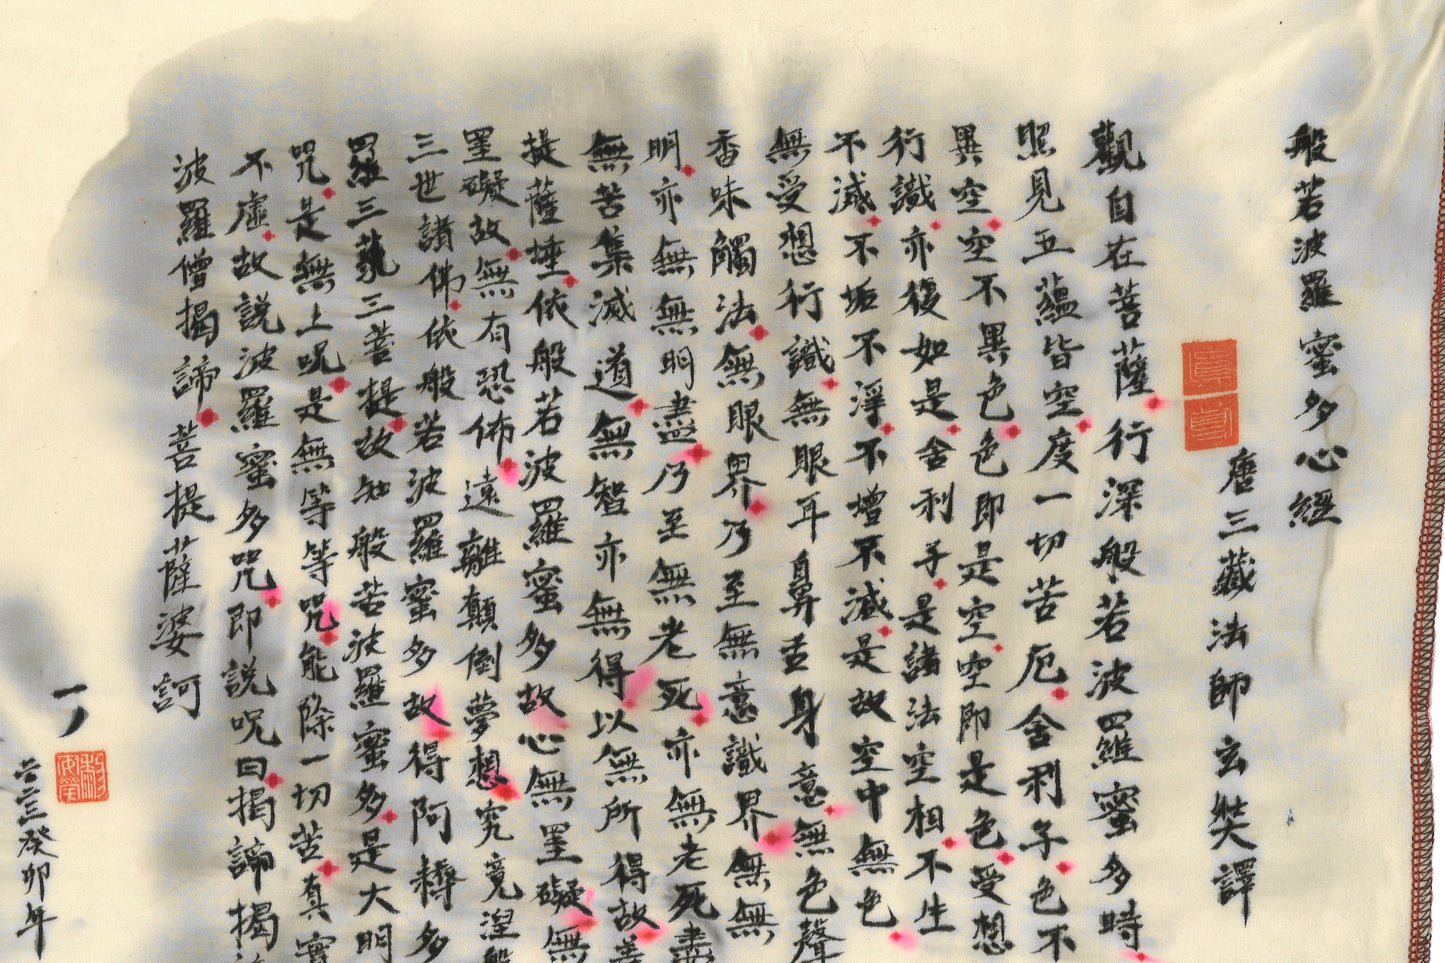 般若波羅蜜多心經
唐三藏法師玄奘譯
觀自在菩薩行深般若波羅蜜多時
照見五蘊皆空度一切苦厄舍利子色不
異空空不異色色即是空空即是色受想
行識亦復如是舍利子是諸法空相不生
不滅不垢不淨不增不減是故空中無色
無受想行識無眼耳鼻舌身意無色聲
香味觸法無眼界乃至無意識界無無
明亦無無明盡乃至無老死亦無老死盡
無苦集滅道無智亦無得以無所得故菩
提薩埵依般若波羅蜜多故心無罣礙無
罣礙故無有恐怖遠離顛倒夢想究竟涅般
三世諸佛依般若波羅蜜多故得阿耨多
羅三藐三菩提故知般若波羅蜜多是大明
咒是無上呪是無等等咒能除一切苦真實
不虛故說波羅蜜多咒即說呪曰揭諦揭
波羅僧揭諦菩提薩婆訶
癸卯年